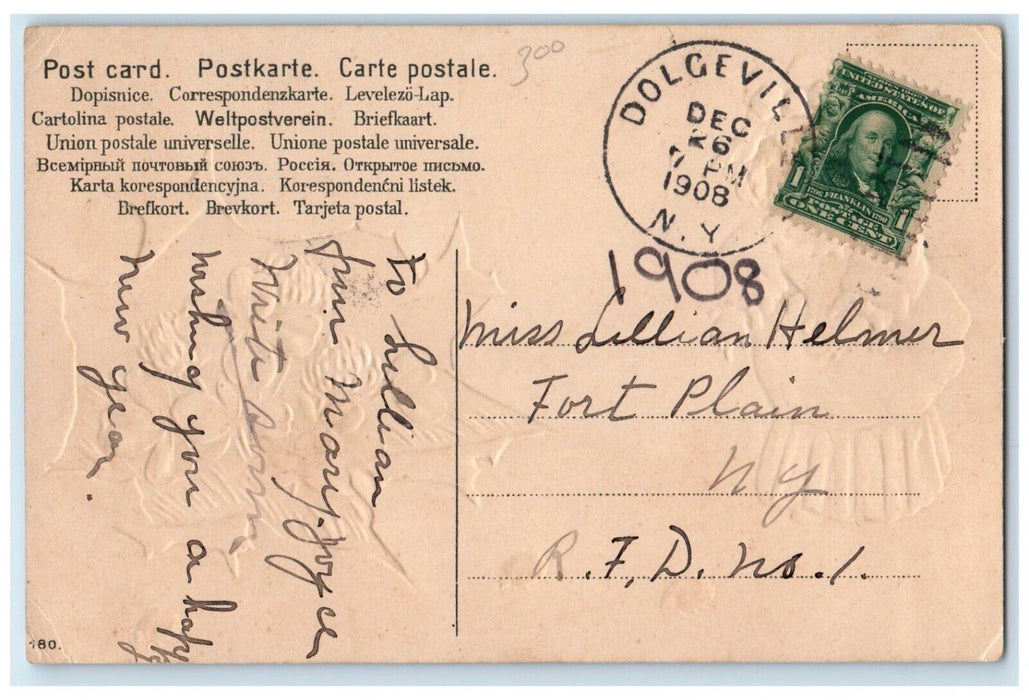 Post card. Postkarte. Carte postale.
Dopisnice. Correspondenzkarte. Levelezö-Lap.
Cartolina postale. Weltpostverein. Briefkaart.
Union postale universelle. Unione postale universale.
Всемірный почтовый союзъ. Россія. Открытое письмо.
Karta korespondencyjna. Korespondenčni listek.
Brefkort. Brevkort. Tarjeta postal.
300
DOLGEVILLE
DEC
26
7 PM
1908
N.Y.
UNITED STATES OF
AMERICA
1706 FRANKLIN 1790
1 POSTAGE 1
ONE CENT
1908
Miss Lillian Helmer
Fort Plain
NY
R.F.D. No. 1.
To Lillian
from Mary Joyce
Write soon
wishing you a happy
new year.
180.